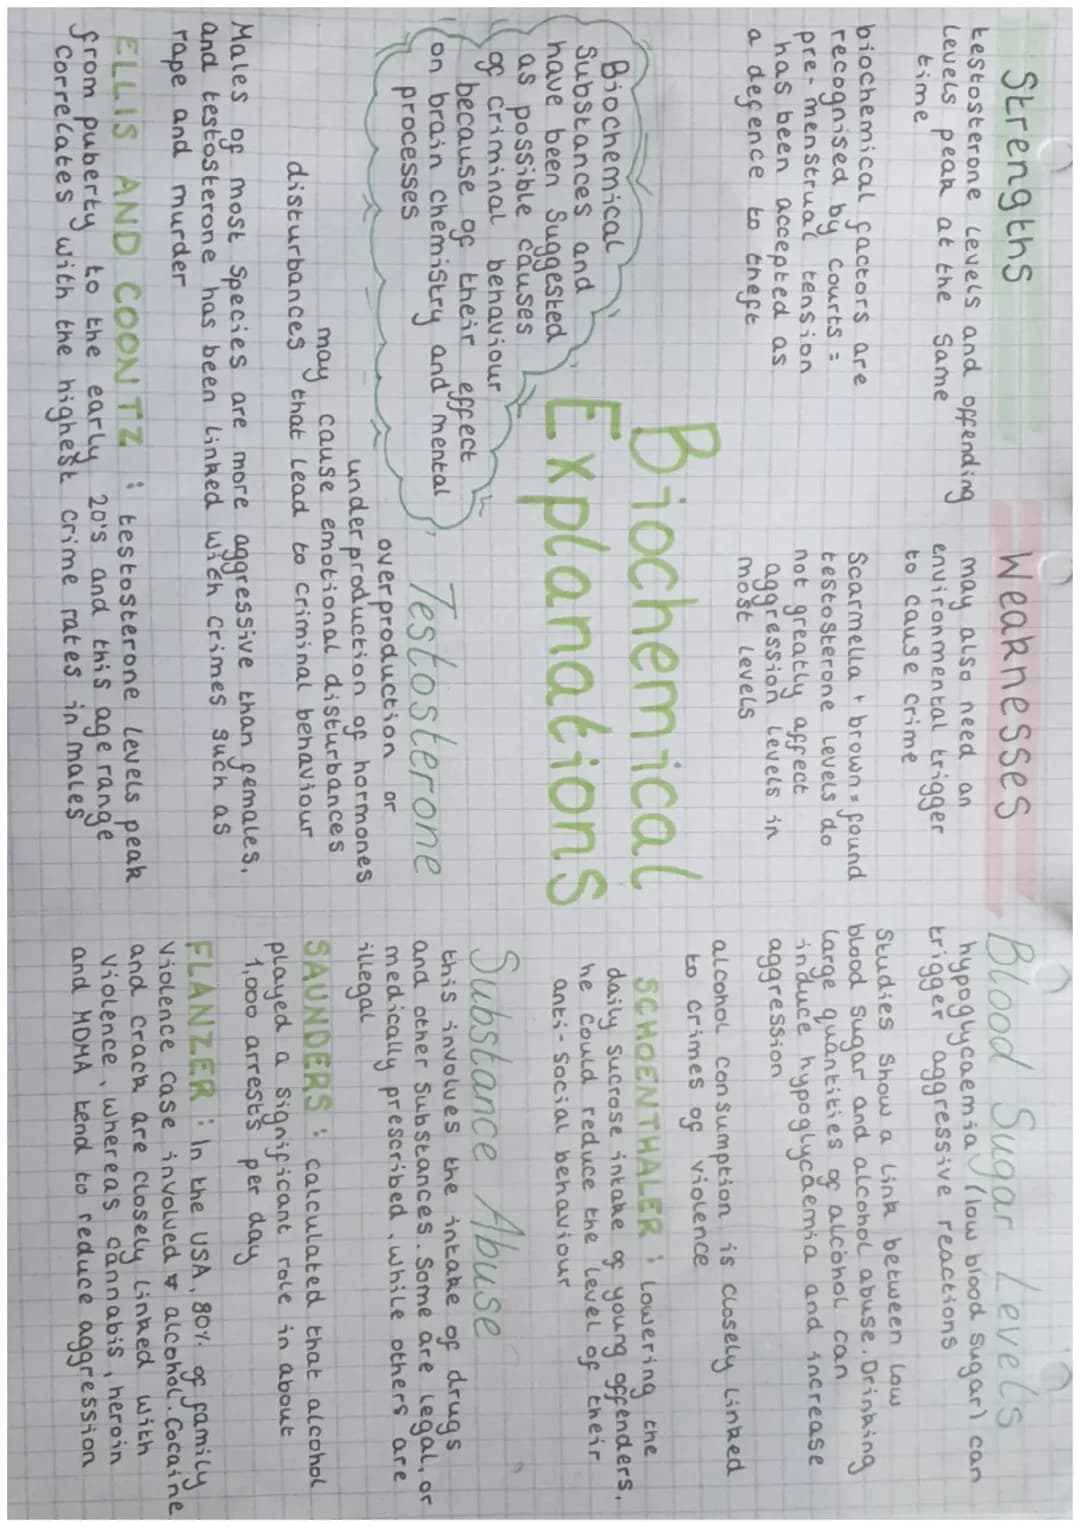 Strengths
testosterone levels and offending
levels peak at the same
time
biochemical factors are
recognised by courts =
pre-menstrual tension
has been accepted as
a defence to theft
Weaknesses
may also need an
environmental trigger
to cause crime
Scarmella + brown = found
testosterone levels do
not greatly affect
aggression levels in
most levels
Blood Sugar Levels
hypoglycaemia (low blood sugar) can
trigger aggressive reactions
Studies show a link between low
blood sugar and alcohol abuse. Drinking
large quantities of alcohol can
induce hypoglycaemia and increase
aggression
alcohol consumption is closely linked
to crimes of violence
SCHOENTHALER : lowering the
daily sucrose intake of young offenders,
he could reduce the level of their
anti-social behaviour
Biochemical
Explanations
Biochemical
Substances and
have been suggested
as possible causes
of criminal behaviour
because of their effect
on brain chemistry and mental
processes
Testosterone
overproduction or
underproduction of hormones
may cause emotional disturbances
disturbances that lead to criminal behaviour
Males of most species are more aggressive than females,
and testosterone has been linked with crimes such as
rape and murder
ELLIS AND COONTZ : testosterone levels peak
from puberty to the early 20's and this age range
correlates with the highest crime rates in males
Substance Abuse
this involves the intake of drugs
and other substances. Some are legal, or
medically prescribed, while others are
illegal
SAUNDERS : calculated that alcohol
played a significant role in about
1,000 arrests per day
FLANZER : In the USA, 80% of family
violence case involved alcohol. Cocaine
and crack are closely linked with
violence, whereas cannabis, heroin
and MDMA tend to reduce aggression